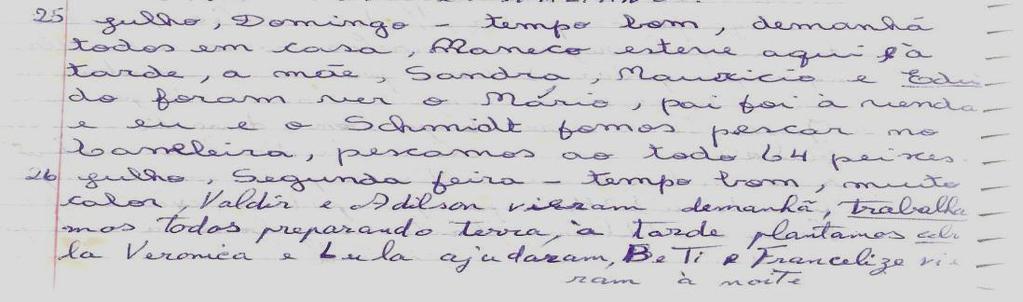 25 julho, Domingo - tempo bom, demanhã
todos em casa, Maneco esteve aqui à
tarde, a mãe, Sandra, Mauricio e Edu
do foram ver o Mário, pai foi à venda
e eu e o Schmidt fomos pescar no
pescamos ao todo 64 peixes
26 julho, Segunda feira - tempo bom, muito
calor, Valdir e Adilson vieram demanhã, trabalha
mos todos preparando terra, à tarde plantamos cebo
la Veronica e Lula ajudaram, Be Ti e Francelize vie
ram à noite